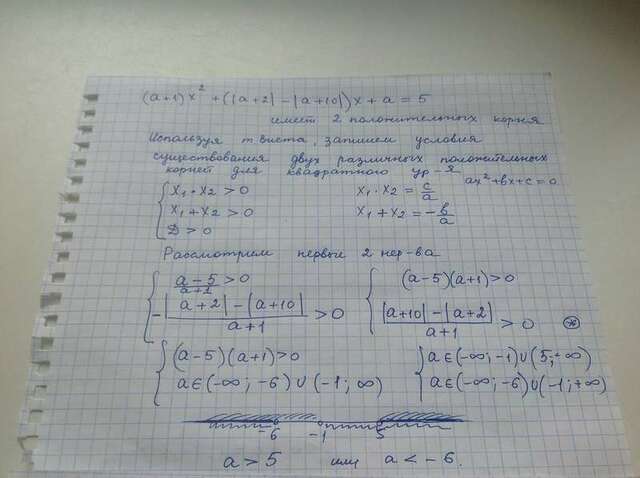 (a+1)x² + (|a+2| - |a+10|)x + a = 5
имеет 2 положительных корня
Используя т. Виета, запишем условия
существования двух различных положительных
корней для квадратного ур-я
ax²+bx+c=0
{ x₁·x₂ > 0    x₁·x₂ = c/a
x₁+x₂ > 0    x₁+x₂ = -b/a
D > 0
Рассмотрим первые 2 нер-ва
{ (a-5)/(a+1) > 0    { (a-5)(a+1) > 0
-(|a+2| - |a+10|)/(a+1) > 0    (|a+10| - |a+2|)/(a+1) > 0 (*)
{ (a-5)(a+1) > 0    { a∈(-∞; -1)∪(5; +∞)
a∈(-∞; -6)∪(-1; ∞)    a∈(-∞; -6)∪(-1; +∞)
-6 -1 5
a > 5 или a < -6.